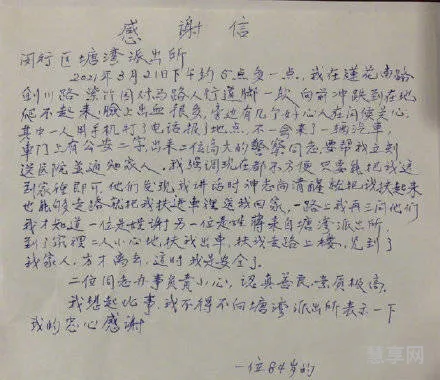 感謝信
闵行区塘湾派出所
2021年3月21日下午约5点多一点，我在莲花南路
剑川路 穿过对马路人行道脚一软 向前冲跌到在地
爬不起来，脸上出血很多，旁边有几个好心人在问候关心。
其中一人用手机打了电话报了地点，不一会来了一辆汽车，
车门上有公安二字出来二位高大的警察同志要帮我立刻
送医院并通知家人，我强调现在都不方便 只要能把我送
到家裡即可，他们发现我讲话时神志尚清醒就把我扶起来
也能够走路就把我扶进车裡送我回家，一路上我再三问他们
我才知道一位是姓谢另一位是姓蒋来自塘湾派出所，
到了家裡二人小心地扶我出车，扶我走路上楼，见到了
我家人，方才离去，这时我是安全了。
二位同志办事负责小心，认真善良，素质极高，
我想起此事，我不得不向塘湾派出所表示一下
我的忠心感谢
一位84岁的
慧享网